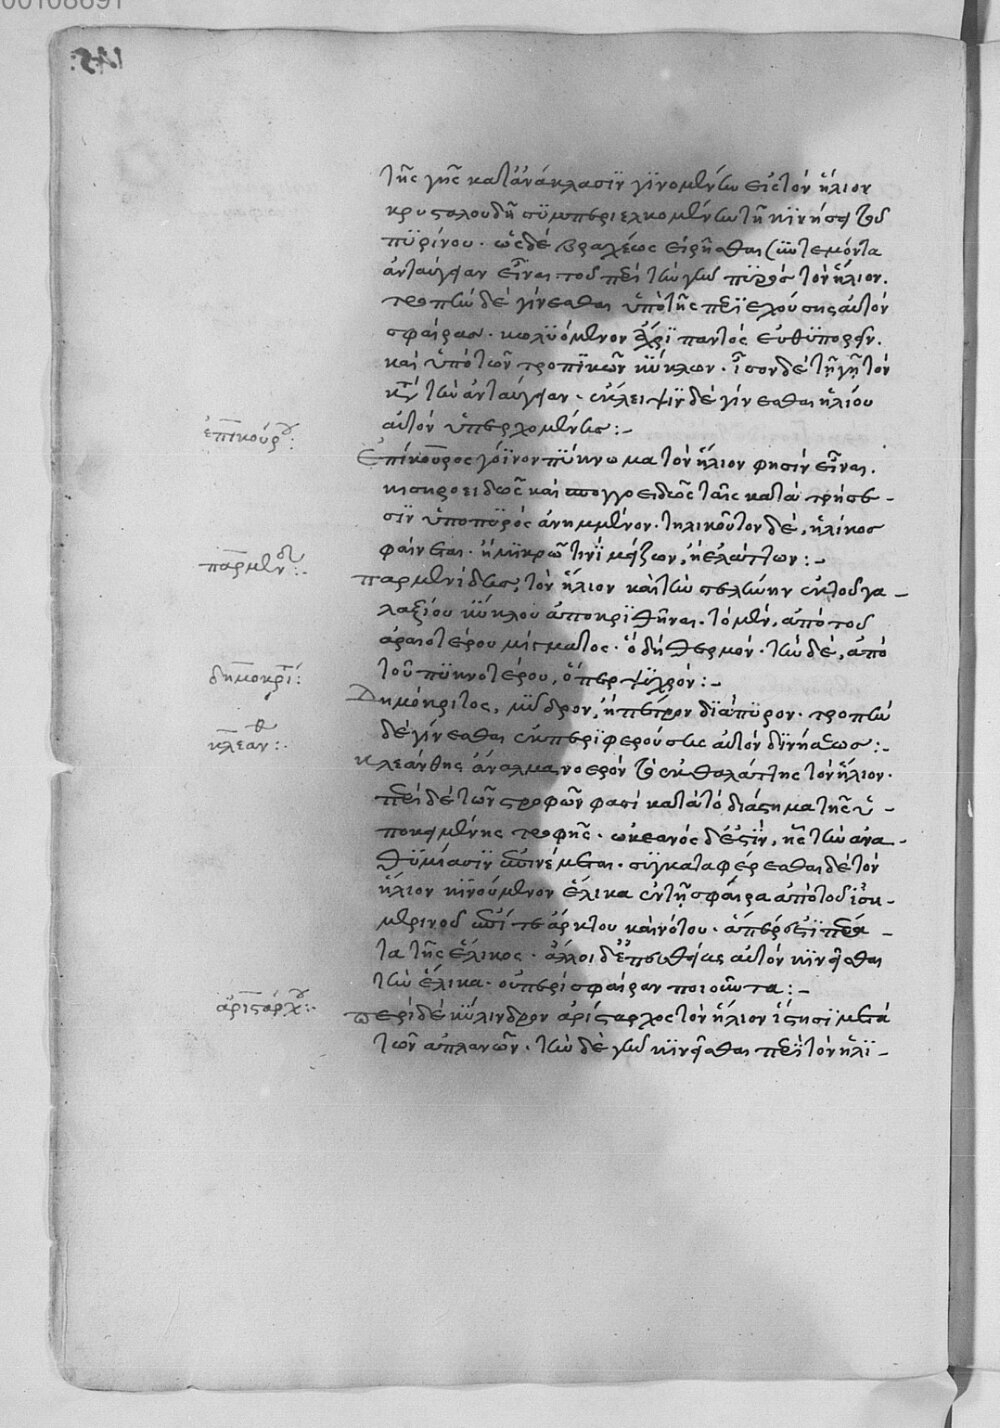 τῆς γῆς κατ' ἀνάκλασϊν γϊνομένην εἰς τὸν ἥλιον
κρυσταλοειδῆ σϋμπεριελκομένην τῆ κϊνήσει τοῦ
πϋρίνου. ὡς δὲ βραχέως εἰρῆσθαι συντεμόντα
ἀνταύγειαν εἶναι τοῦ περὶ τὴν γῆν πϋρὸς τὸν ἥλιον.
τροπὴν δὲ γίνεσθαι ὑπὸ τῆς περϊεχούσης αὐτὸν
σφαίρας. κωλϋόμενον ἄχρϊ παντὸς εὐθϋπορεῖν.
καὶ ὑπὸ τῶν τροπϊκῶν κϋκλων. ἶσον δὲ τῆ γῆ τὸν
κατὰ τὴν ἀνταύγειαν. ἔκλειψϊν δὲ γίνεσθαι ἡλίου
αὐτὸν ὑπερχομένης :-
ἐπικούρου:
Ἐπίκουρος γήϊνον πϋκνωμα τὸν ἥλιον φησὶν εἶναι.
κισηροειδῶς καὶ σπογγοειδῶς ταῖς κατατρήσε-
σϊν ὑπὸ πϋρὸς ἀνημμένον. τηλικοῦτον δὲ, ἡλίκος
φαίνεται. ἢ μϊκρῶ τινϊ μείζων, ἢ ἐλάττων :-
παρμενίδου:.
παρμενίδης, τὸν ἥλιον καὶ τὴν σελήνην ἐκ τοῦ γα-
λαξίου κϋκλου ἀποκρϊθῆναι. τὸ μὲν, ἀπὸ τοῦ
ἀραιοτέρου μίγματος. ὃ δὴ θερμόν. τὴν δὲ, ἀπὸ
τοῦ πϋκνοτέρου, ὅπερ ψϋχρόν :-
δημοκρί:
Δημόκριτος, μϋδρον, ἢ πέτρον δϊάπϋρον. τροπὴν
δὲ γίνεσθαι ἐκ περϊφερούσης αὐτὸν δϊνήσεως :-
κλεάνθ:.
κλεάνθης ἄναμμα νοερὸν τὸ ἐκ θαλάττης τὸν ἥλιον.
περὶ δὲ τῶν τροπῶν φασὶ κατὰ τὸ διάστημα τῆς ὑ-
ποκειμένης τροφῆς. ὠκεανὸς δέ ἐστϊν, ἧς τὴν ἀνα-
θϋμίασϊν ἐπινέμεται. σϋγκαταφέρεσθαι δὲ τὸν
ἥλιον κϊνούμενον ἕλικα ἐν τῆ σφαίρα ἀπὸ τοῦ ἰση-
μερινοῦ ἐπί τε ἄρκτου καὶ νότου. ἅπερ ἐστὶ πέρα-
τα τῆς ἕλικος. ἄλλοι δ' ἐπ' εὐθείας αὐτὸν κϊνεῖσθαι
τὴν ἕλικα. οὐ περὶ σφαῖραν ποιοῦντα :-
ἀρίσταρχου:-
περὶ δὲ κϋλινδρον ἀρίσταρχος τὸν ἥλιον ἵστησϊ μετὰ
τῶν ἀπλανῶν. τὴν δὲ γῆν κϊνεῖσθαι περὶ τὸν ἡλϊ-